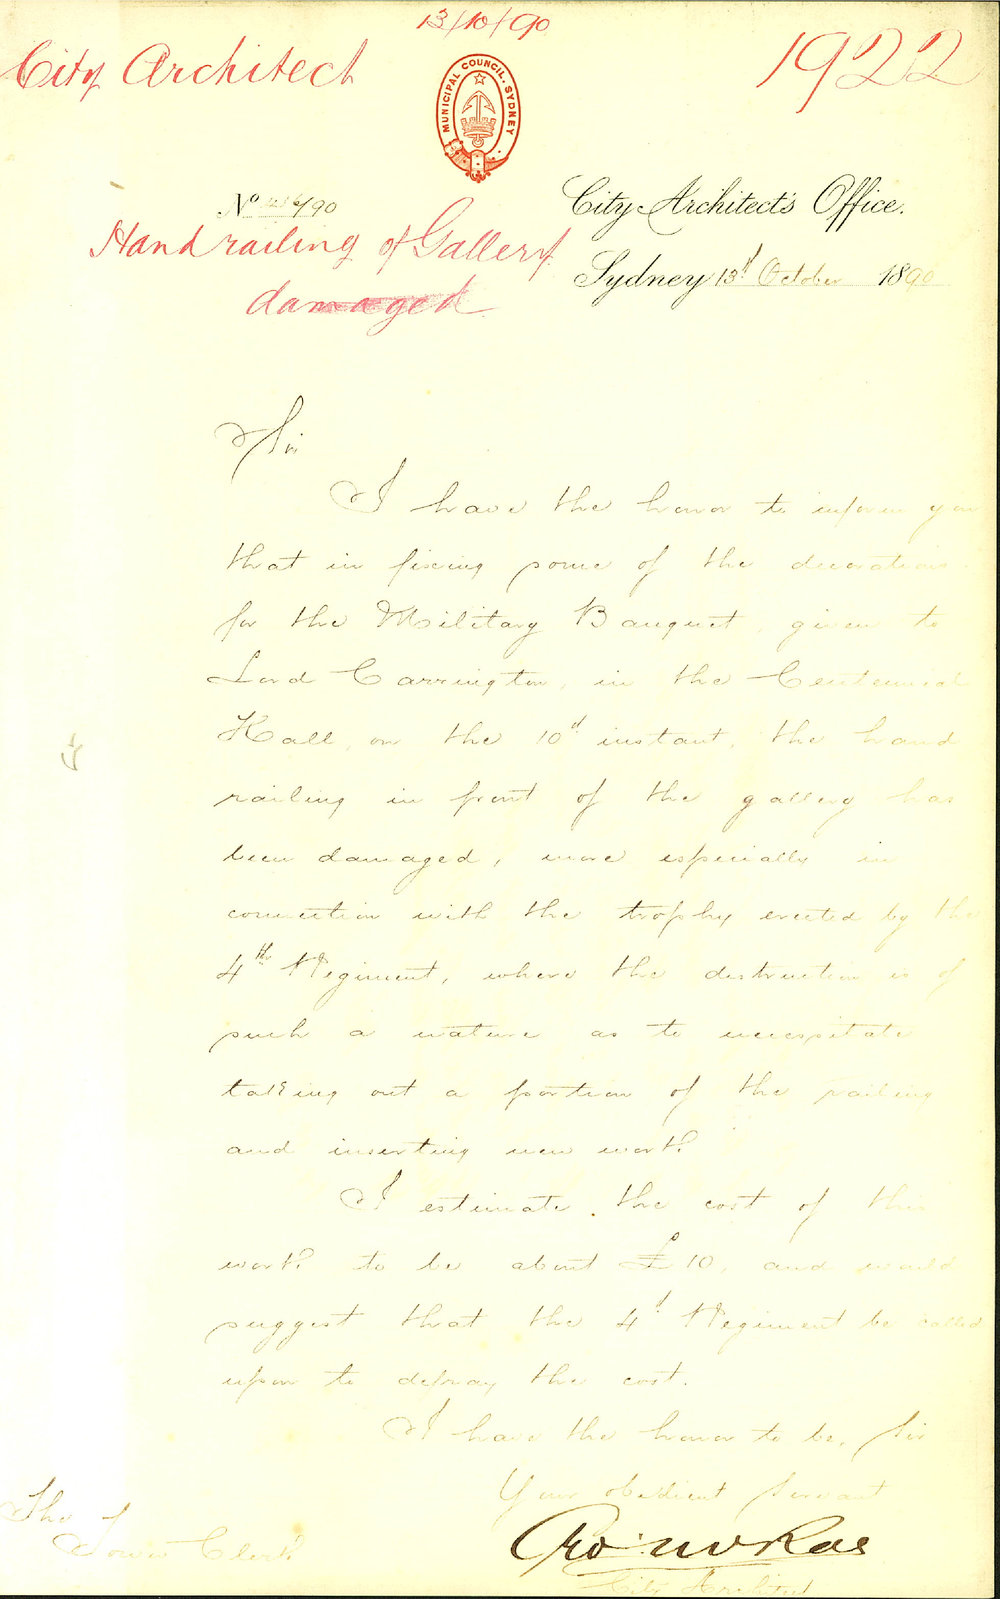 13/10/90
City Architect
1922
MUNICIPAL COUNCIL, SYDNEY
No /90
City Architect's Office.
Handrailing of Gallery
damaged
Sydney 13th October 1890
Sir
I have the honor to inform you
that in fixing some of the decorations
for the Military Banquet, given to
Lord Carrington, in the Centennial
Hall, on the 10th instant, the hand
railing in front of the gallery has
been damaged, more especially in
connection with the trophy erected by the
4th Regiment, where the destruction is of
such a nature as to necessitate
taking out a portion of the railing
and inserting new work
I estimate the cost of this
work to be about £10, and would
suggest that the 4th Regiment be called
upon to defray the cost.
I have the honor to be, Sir
Your obedient Servant
The
Town Clerk
City Architect